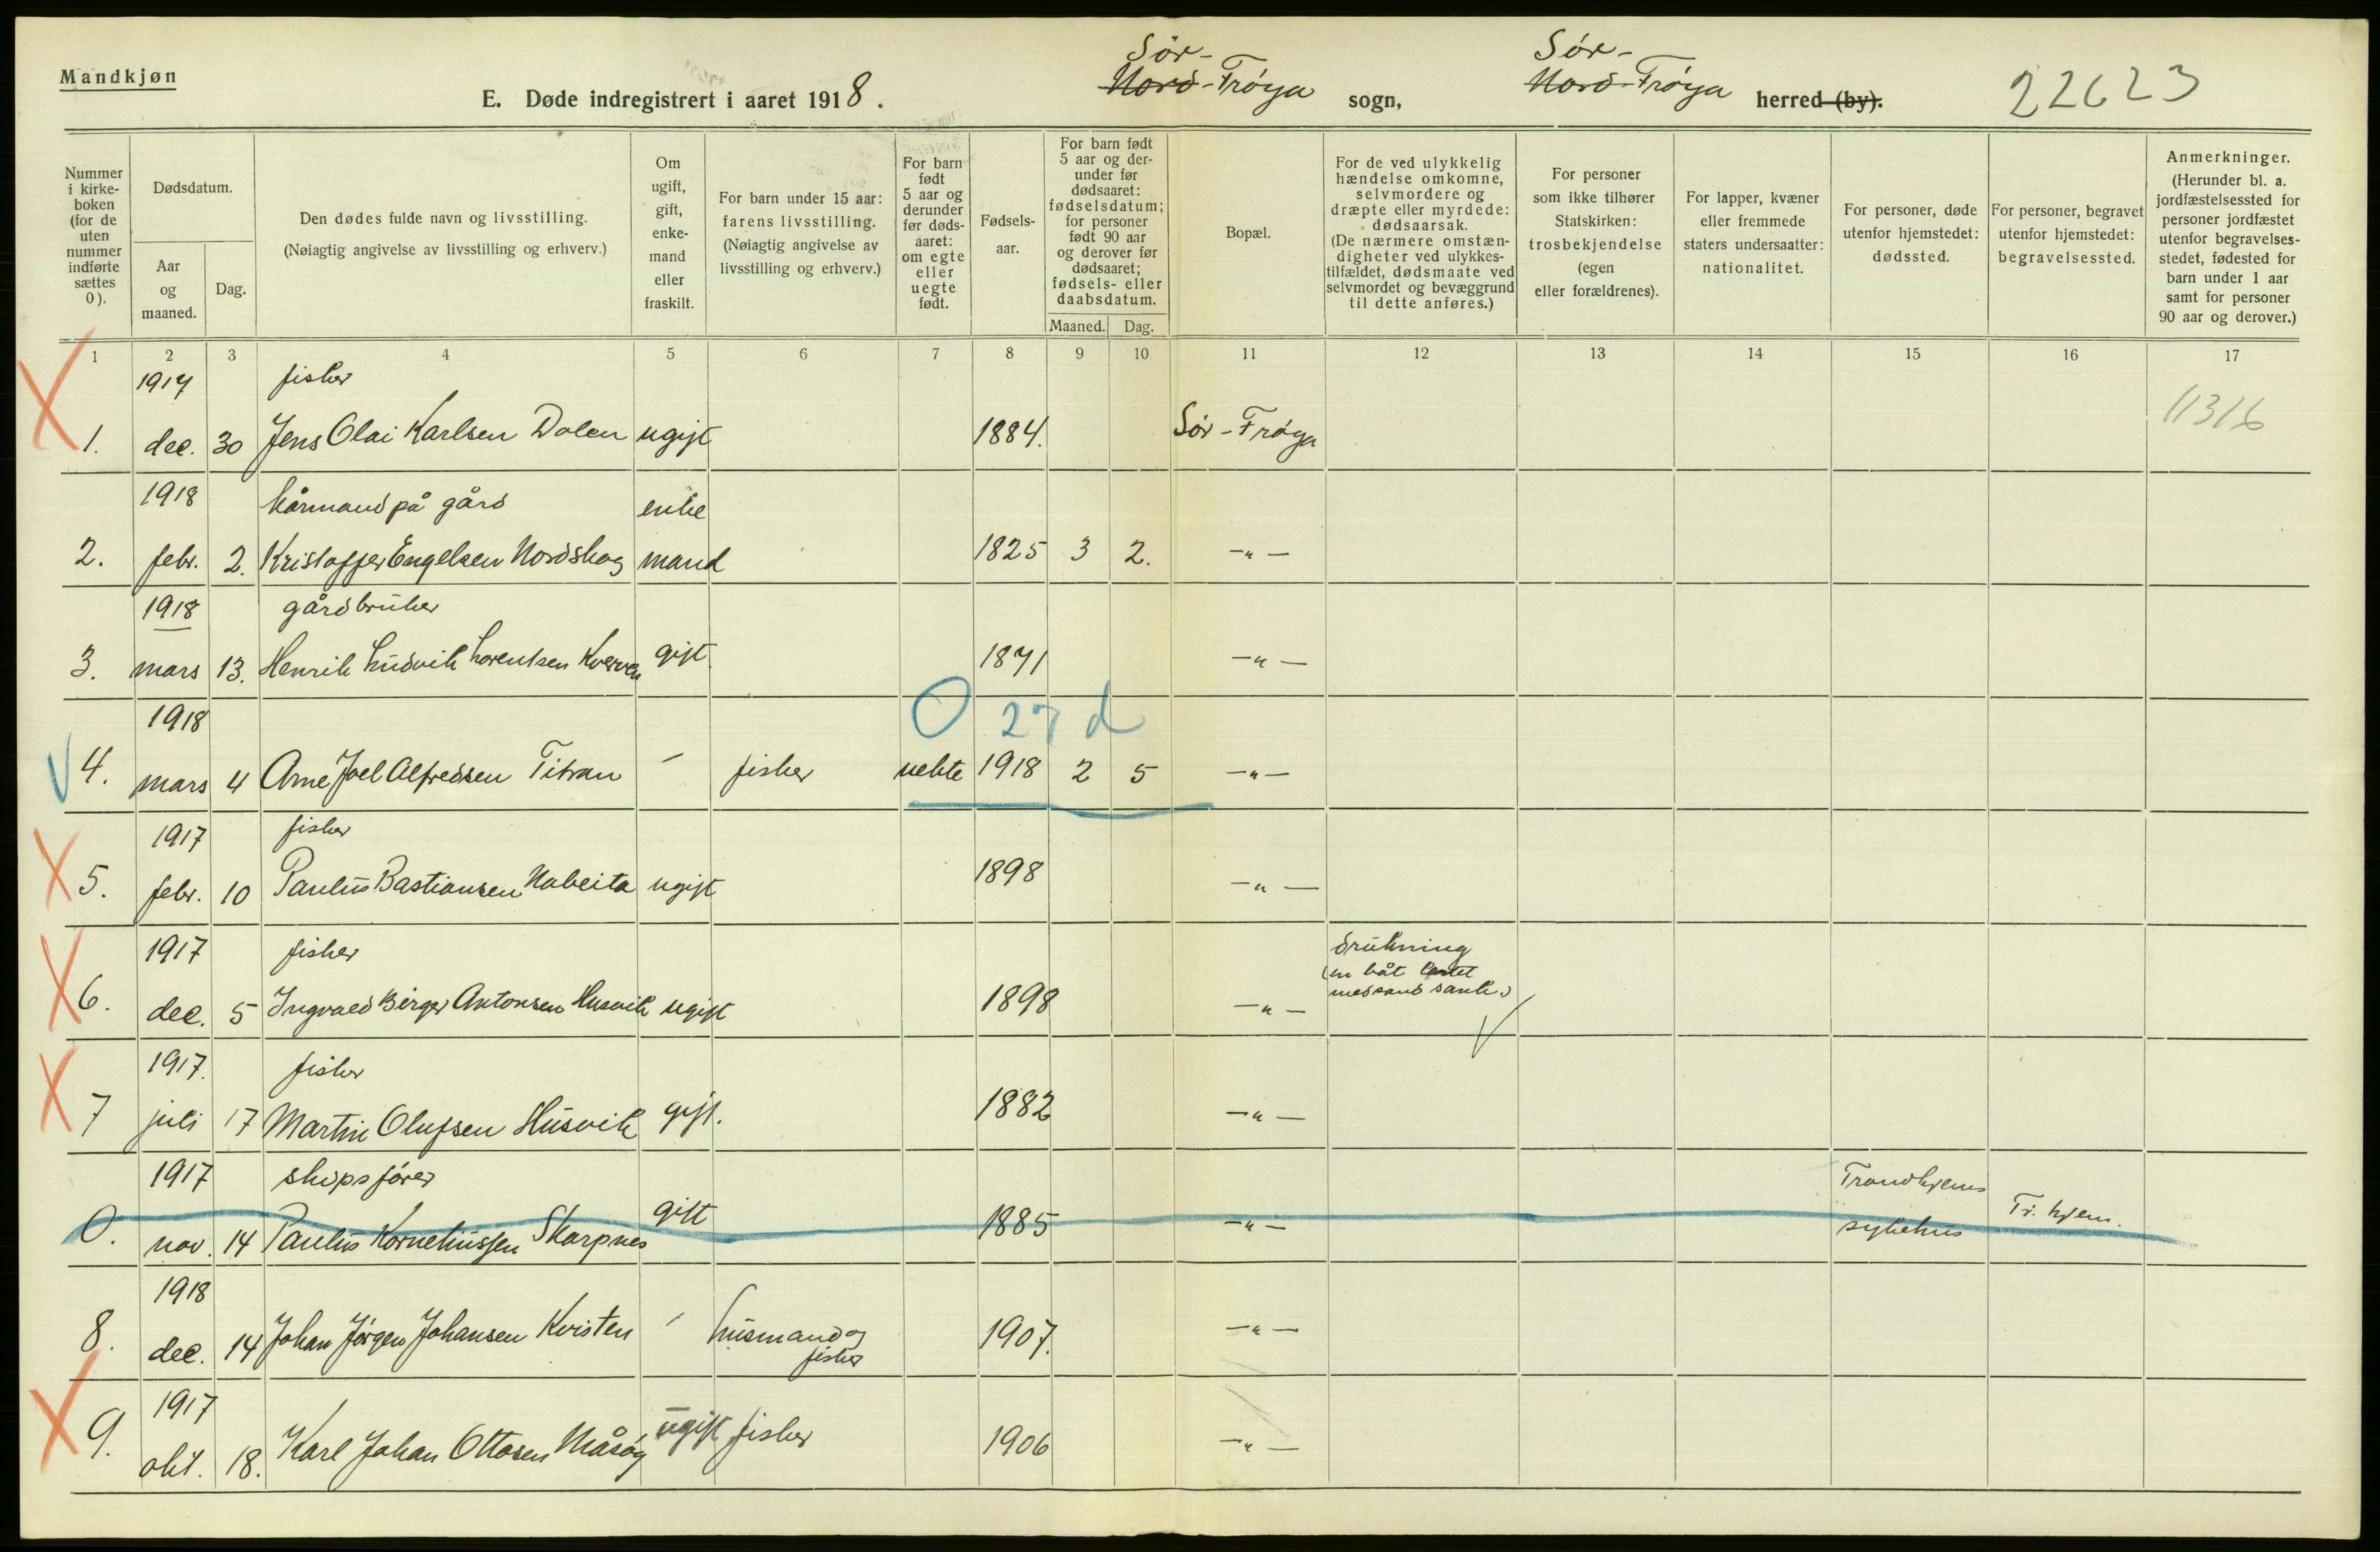 Mandkjøn
E. Døde indregistrert i aaret 1918.
Sør-
Nord-Frøya sogn,
Sør-
Nord-Frøya herred (by).
22623
Nummer i kirke-boken (for de uten nummer indførte sættes 0).
Dødsdatum.
Aar og maaned.
Dag.
Den dødes fulde navn og livsstilling.
(Nøiagtig angivelse av livsstilling og erhverv.)
Om ugift, gift, enke-mand eller fraskilt.
For barn under 15 aar: farens livsstilling.
(Nøiagtig angivelse av livsstilling og erhverv.)
For barn født 5 aar og derunder før døds-aaret: om egte eller uegte født.
Fødsels-aar.
For barn født 5 aar og der-under før dødsaaret: fødselsdatum; for personer født 90 aar og derover før dødsaaret; fødsels- eller daabsdatum.
Maaned. Dag.
Bopæl.
For de ved ulykkelig hændelse omkomne, selvmordere og dræpte eller myrdede: dødsaarsak.
(De nærmere omstæn-digheter ved ulykkes-tilfældet, dødsmaate ved selvmordet og bevæggrund til dette anføres.)
For personer som ikke tilhører Statskirken: trosbekjendelse (egen eller forældrenes).
For lapper, kvæner eller fremmede staters undersaatter: nationalitet.
For personer, døde utenfor hjemstedet: dødssted.
For personer, begravet utenfor hjemstedet: begravelsessted.
Anmerkninger.
(Herunder bl. a. jordfæstelsessted for personer jordfæstet utenfor begravelses-stedet, fødested for barn under 1 aar samt for personer 90 aar og derover.)
1 2 3 4 5 6 7 8 9 10 11 12 13 14 15 16 17
1917 fisker
1. dec. 30 Jens Olai Karlsen Dalen ugift 1884. Sør-Frøya 11316
1918 kårmand på gård enke
2. febr. 2. Kristoffer Engelsen Nordskag mand 1825 3 2. -"-
1918 gårdbruker
3. mars 13. Henrik Ludvik Lorentsen Kverven gift 1871 -"-
1918 0 27 d
4. mars 4 Arne Joel Alfredsen Titran - fisker uekte 1918 2 5 -"-
1917 fisker
5. febr. 10 Paulus Bastiansen Nabeita ugift 1898 -"-
1917 fisker drukning
(en båt lastet
6. dec. 5 Ingvald Birger Antonsen Husvik ugift 1898 -"- med sand sank.)
1917. fisker
7 juli 17 Martin Olufsen Husvik gift. 1882 -"-
1917 skipsfører Trondhjems
0. nov. 14 Paulus Korneliussen Skarpnes gift 1885 -"- sykehus Tr. hjem.
1918
8. dec. 14 Johan Jørgen Johansen Kvisten - husmand og fisker 1907. -"-
1917
9. okt. 18. Karl Johan Ottosen Måsøy ugift fisker 1906 -"-